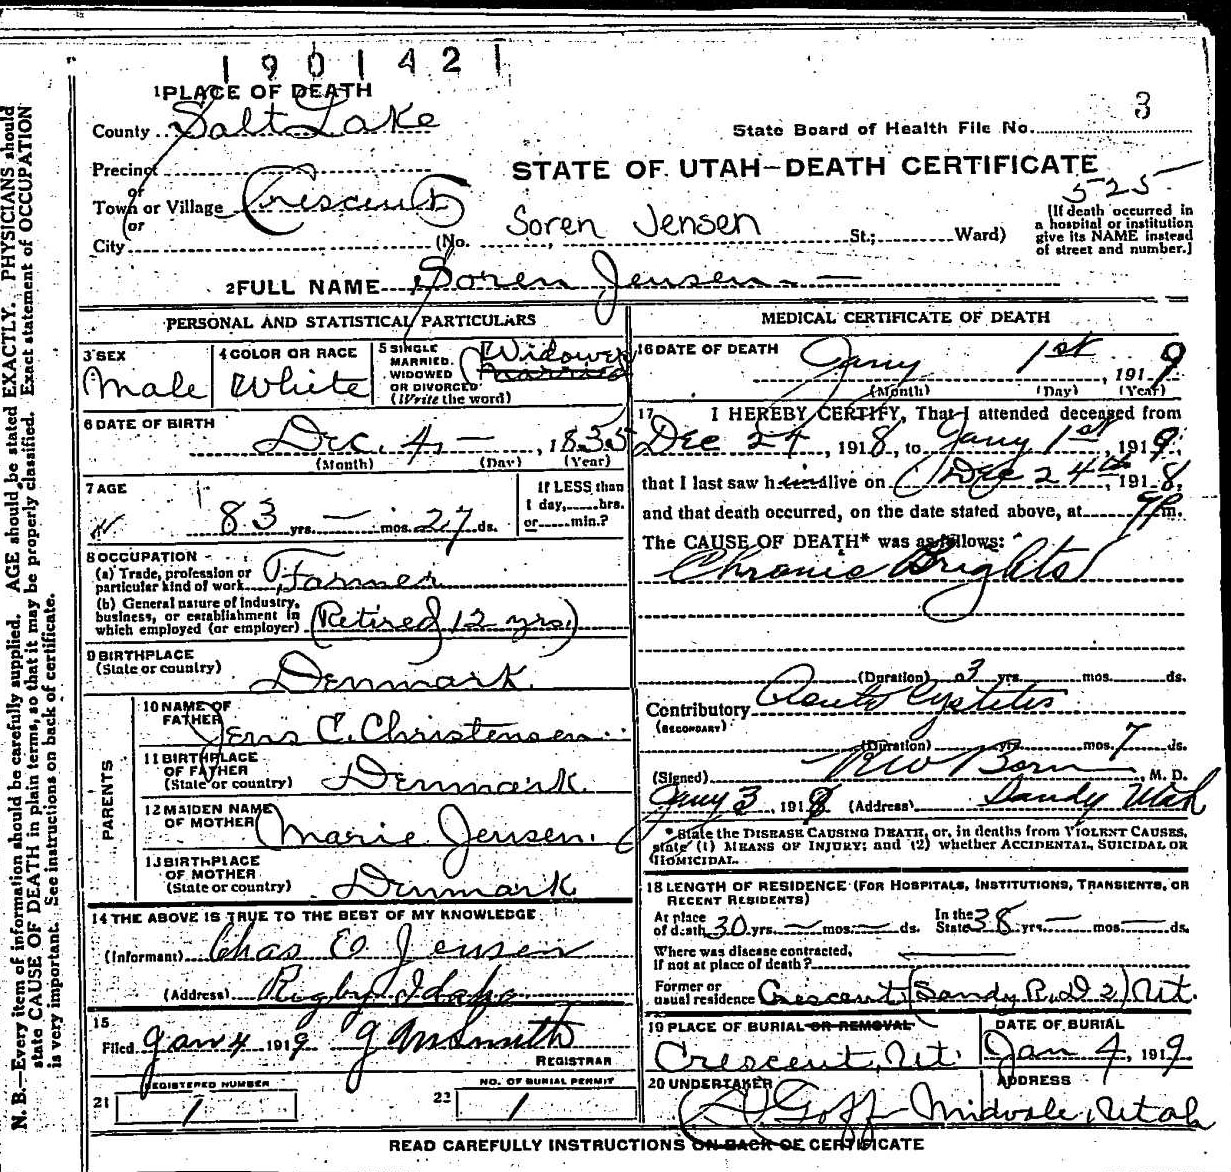 1901421
1 PLACE OF DEATH
3
County Salt Lake
State Board of Health File No.
Precinct
STATE OF UTAH—DEATH CERTIFICATE
or
525
Town or Village Crescent
Soren Jensen
(If death occurred in a hospital or institution give its NAME instead of street and number.)
or
City (No. St.; Ward)
2 FULL NAME Soren Jensen
PERSONAL AND STATISTICAL PARTICULARS
3 SEX Male
4 COLOR OR RACE White
5 SINGLE MARRIED. WIDOWED OR DIVORCED (Write the word) Widower Married
6 DATE OF BIRTH Dec. 4, 1835
(Month) (Day) (Year)
7 AGE 83 yrs. — mos. 27 ds.
If LESS than 1 day, hrs. or min.?
8 OCCUPATION
(a) Trade, profession or particular kind of work Farmer
(b) General nature of industry, business, or establishment in which employed (or employer) (Retired 12 yrs.)
9 BIRTHPLACE (State or country) Denmark.
PARENTS
10 NAME OF FATHER Jens C. Christensen
11 BIRTHPLACE OF FATHER (State or country) Denmark.
12 MAIDEN NAME OF MOTHER Marie Jensen.
13 BIRTHPLACE OF MOTHER (State or country) Denmark
14 THE ABOVE IS TRUE TO THE BEST OF MY KNOWLEDGE
(Informant) Chas E Jensen
(Address) Rigby Idaho
15
Filed Jan 4 1919
REGISTRAR
REGISTERED NUMBER
21 1
NO. OF BURIAL PERMIT
22 1
MEDICAL CERTIFICATE OF DEATH
16 DATE OF DEATH Jany 1st, 1919
(Month) (Day) (Year)
17 I HEREBY CERTIFY, That I attended deceased from
Dec 24, 1918, to Jany 1st 1919,
that I last saw him alive on Dec 24th, 1918,
and that death occurred, on the date stated above, at 9 P m.
The CAUSE OF DEATH* was as follows:
Chronic Brights
(Duration) 3 yrs. mos. ds.
Contributory Acute Cystitis
(SECONDARY)
(Duration) yrs. mos. 7 ds.
(Signed) R W Born, M. D.
Jany 3, 1918 (Address) Sandy Utah
*State the DISEASE CAUSING DEATH, or, in deaths from VIOLENT CAUSES,
state (1) MEANS OF INJURY; and (2) whether ACCIDENTAL, SUICIDAL OR
HOMICIDAL.
18 LENGTH OF RESIDENCE (FOR HOSPITALS, INSTITUTIONS, TRANSIENTS, OR
RECENT RESIDENTS)
At place of death 30 yrs. — mos. — ds. In the State 38 yrs. — mos. — ds.
Where was disease contracted, If not at place of death?
Former or usual residence Crescent (Sandy R.D 2) Ut.
19 PLACE OF BURIAL OR REMOVAL Crescent, Ut.
DATE OF BURIAL Jan 4, 1919
20 UNDERTAKER Goff
ADDRESS Midvale, Utah
READ CAREFULLY INSTRUCTIONS ON BACK OF CERTIFICATE
N. B.—Every item of information should be carefully supplied. AGE should be stated EXACTLY. PHYSICIANS should
state CAUSE OF DEATH in plain terms, so that it may be properly classified. Exact statement of OCCUPATION
is very important. See instructions on back of certificate.